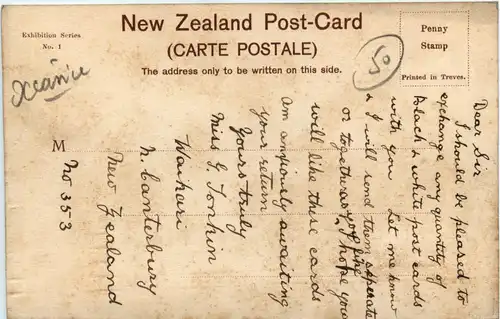 Exhibition Series
No. 1
New Zealand Post-Card
(CARTE POSTALE)
The address only to be written on this side.
Penny
Stamp
Printed in Treves.
50
Océanie
M
Dear Sir
I should be pleased to
exchange any quantity of
Black & white post cards
with you Let me know
& I will send them separate
or together as you like I hope you
will like these cards
am anxiously awaiting
your return
Yours truly
Miss G. Tonkin
Waikari
N. Canterbury
New Zealand
No 353